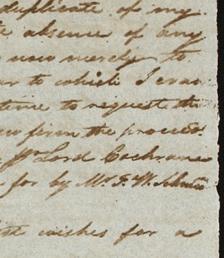 duplicate of my
absence of any
now merely to
to which I was
to request the
from the proceed
Lord Cochrane
for by Mr. F. W.
wishes for a